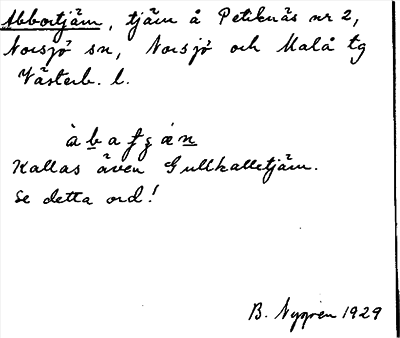 Abbortjäm, tjäm å Petiknäs nr 2,
Norsjö sn, Norsjö och Malå tg
Västerb. l.
Kallas även Gullkalletjäm.
Se detta ord!
B. Nygren 1929